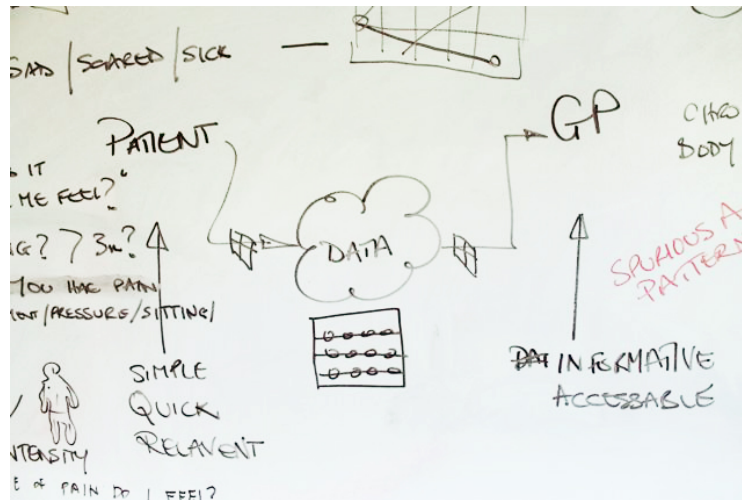 SAD / SCARED / SICK —
PATIENT
GP
BODY
IT
ME FEEL?"
DATA
? > 3m?
YOU HAVE PAIN
/ PRESSURE / SITTING /
SPURIOUS A
PATTERN
SIMPLE
QUICK
RELAVENT
INFORMATIVE
ACCESSABLE
NTENSITY
E OF PAIN DO I FEEL?